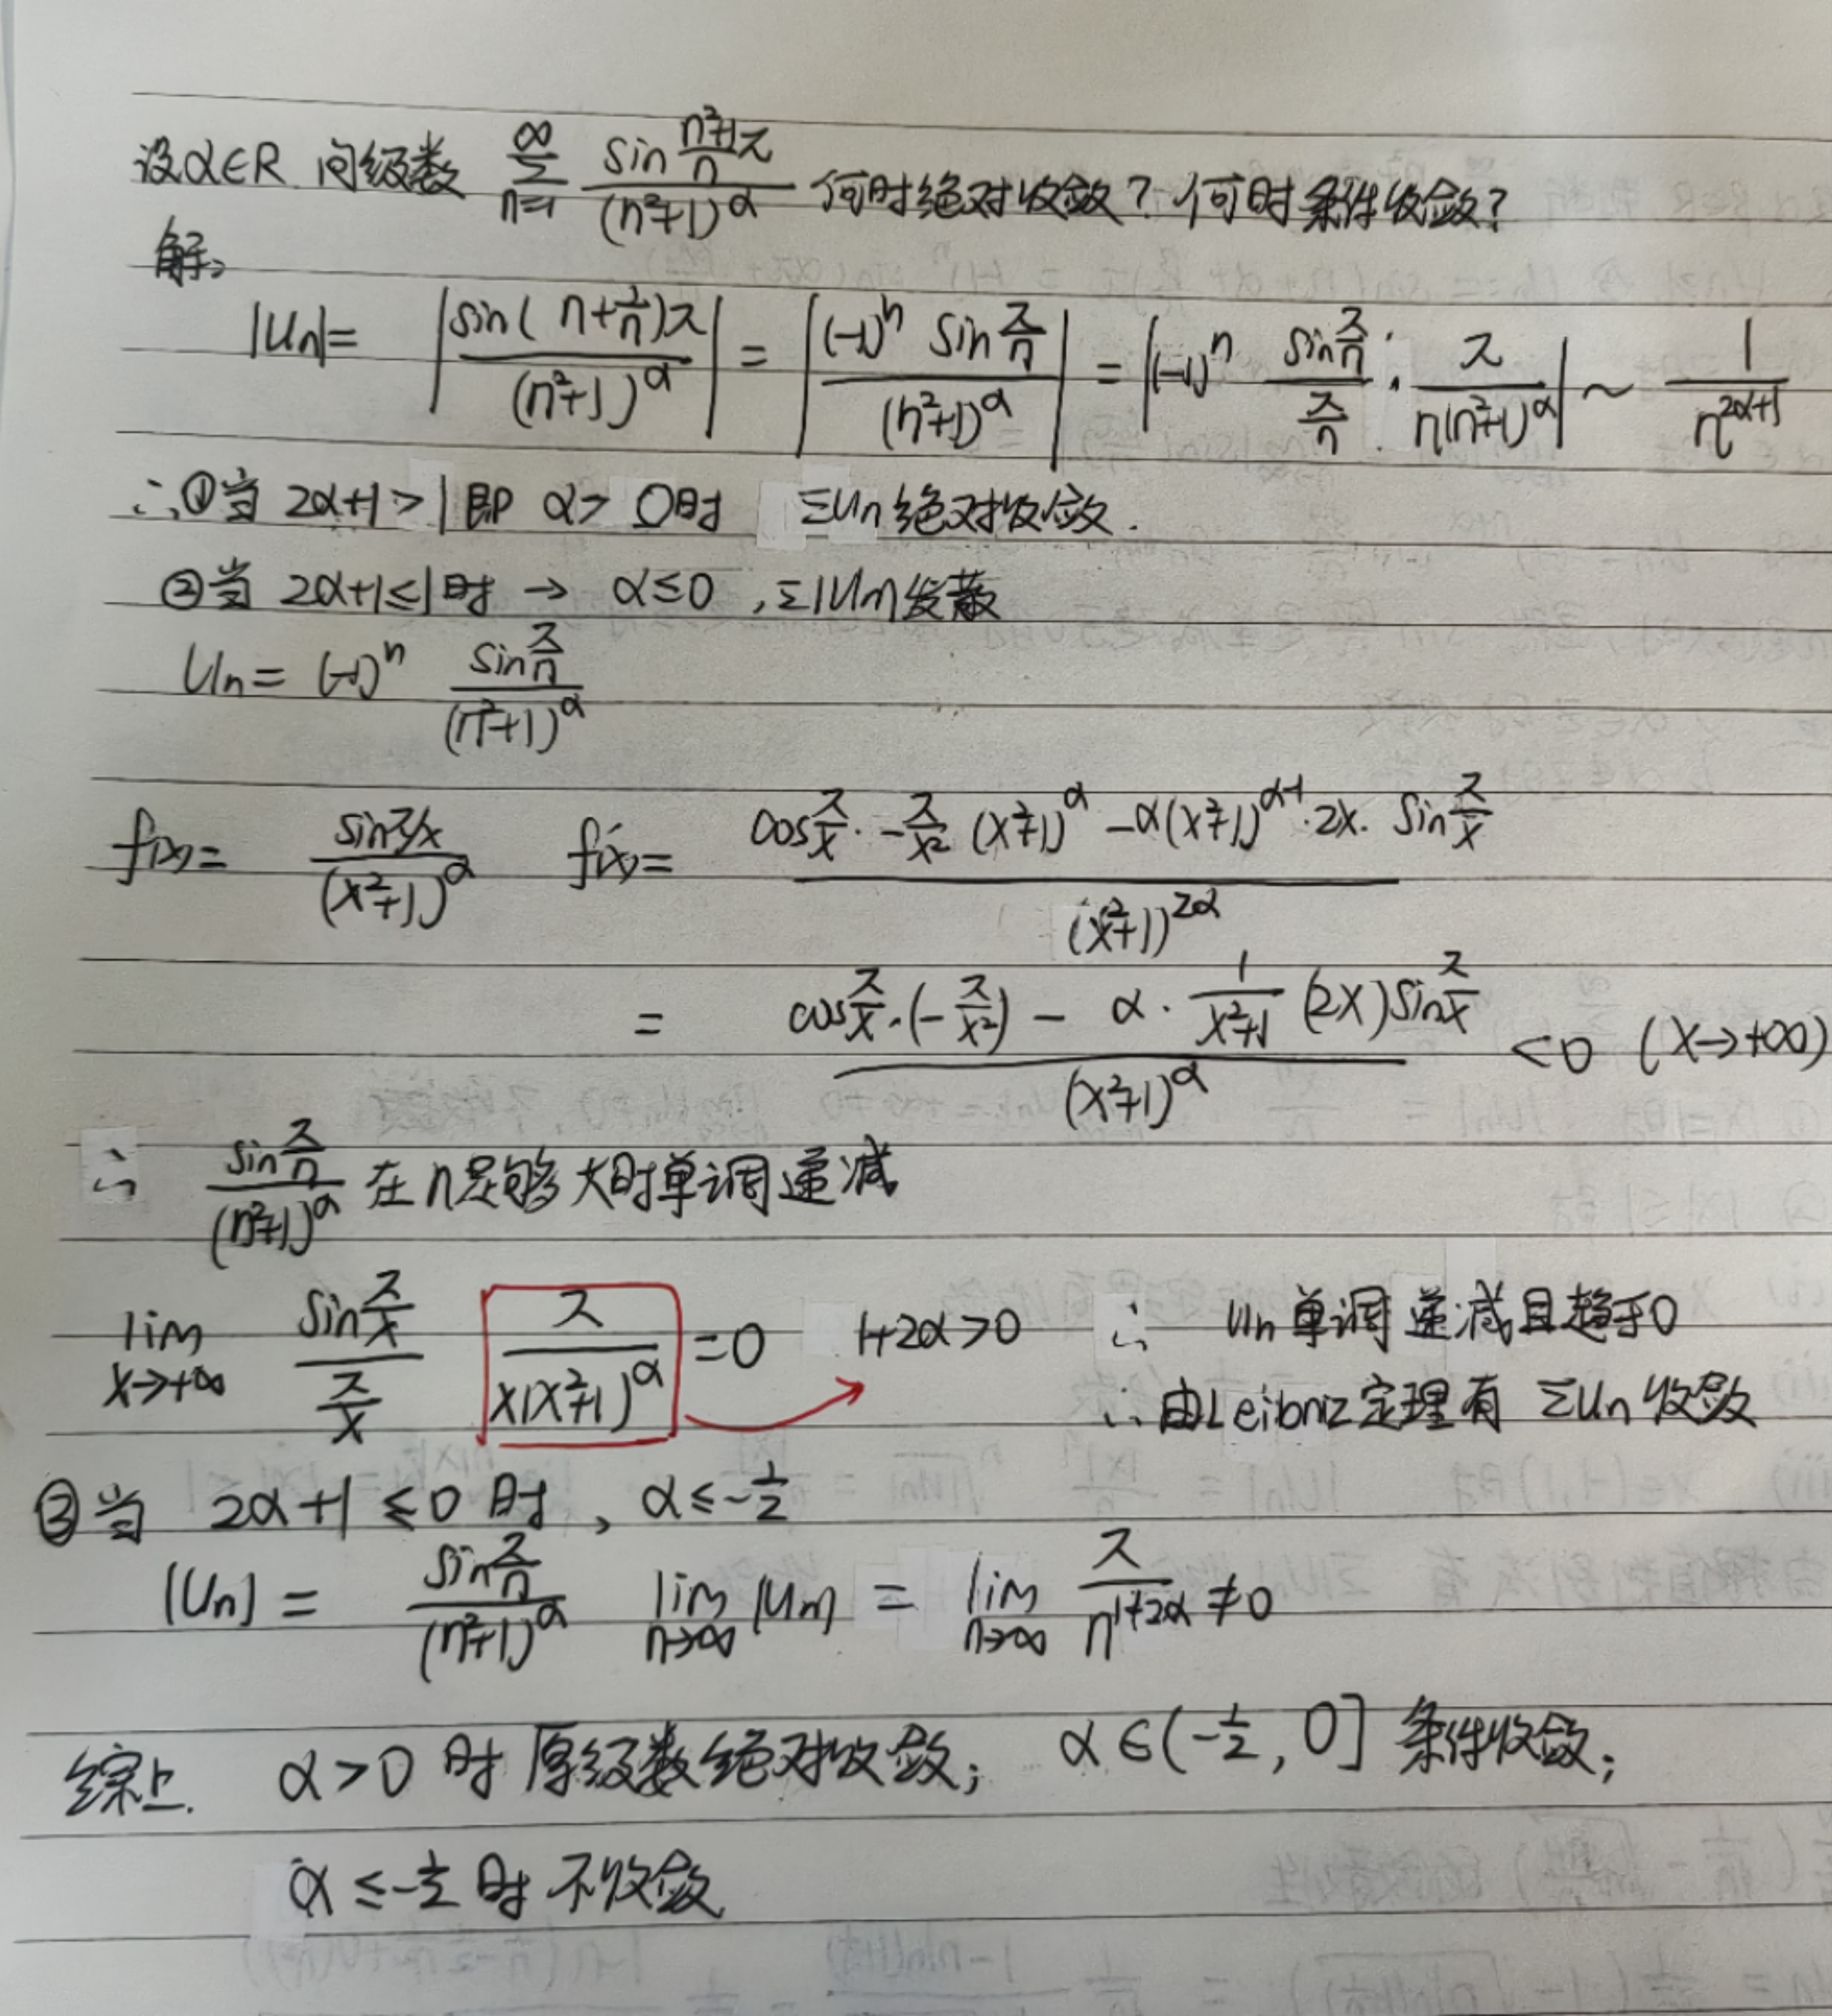 设α∈R 问级数 ∑_{n=1}^{∞} sin(n²+1)/n π / (n²+1)^α 何时绝对收敛？何时条件收敛？
解：
|Un| = | sin(n+1/n)π / (n²+1)^α | = | (-1)^n sin π/n / (n²+1)^α | = | (-1)^n (sin π/n)/(π/n) · π/(n(n²+1)^α) | ~ 1/n^{2α+1}
∴①当 2α+1>1 即 α>0时 ΣUn绝对收敛.
②当 2α+1≤1时 → α≤0 , Σ|Un|发散
Un = (-1)^n sin π/n / (n²+1)^α
f(x) = sin π/x / (x²+1)^α f'(x) = [cos π/x · -π/x² (x²+1)^α - α(x²+1)^{α-1}·2x· sin π/x] / (x²+1)^{2α}
= [cos π/x ·(-π/x²) - α· 1/(x²+1) (2x) sin π/x] / (x²+1)^α <0 (x→+∞)
∴ sin π/n / (n²+1)^α 在n足够大时单调递减
lim_{x→+∞} (sin π/x)/(π/x) π/(x(x²+1)^α) =0 1+2α>0 ∴ Un单调递减且趋于0
∴由Leibniz定理有 ΣUn收敛
③当 2α+1≤0时, α≤-1/2
|Un| = sin π/n / (n²+1)^α lim_{n→∞} |Un| = lim_{n→∞} π/n^{1+2α} ≠0
综上. α>0时原级数绝对收敛; α∈(-1/2, 0] 条件收敛;
α≤-1/2时不收敛